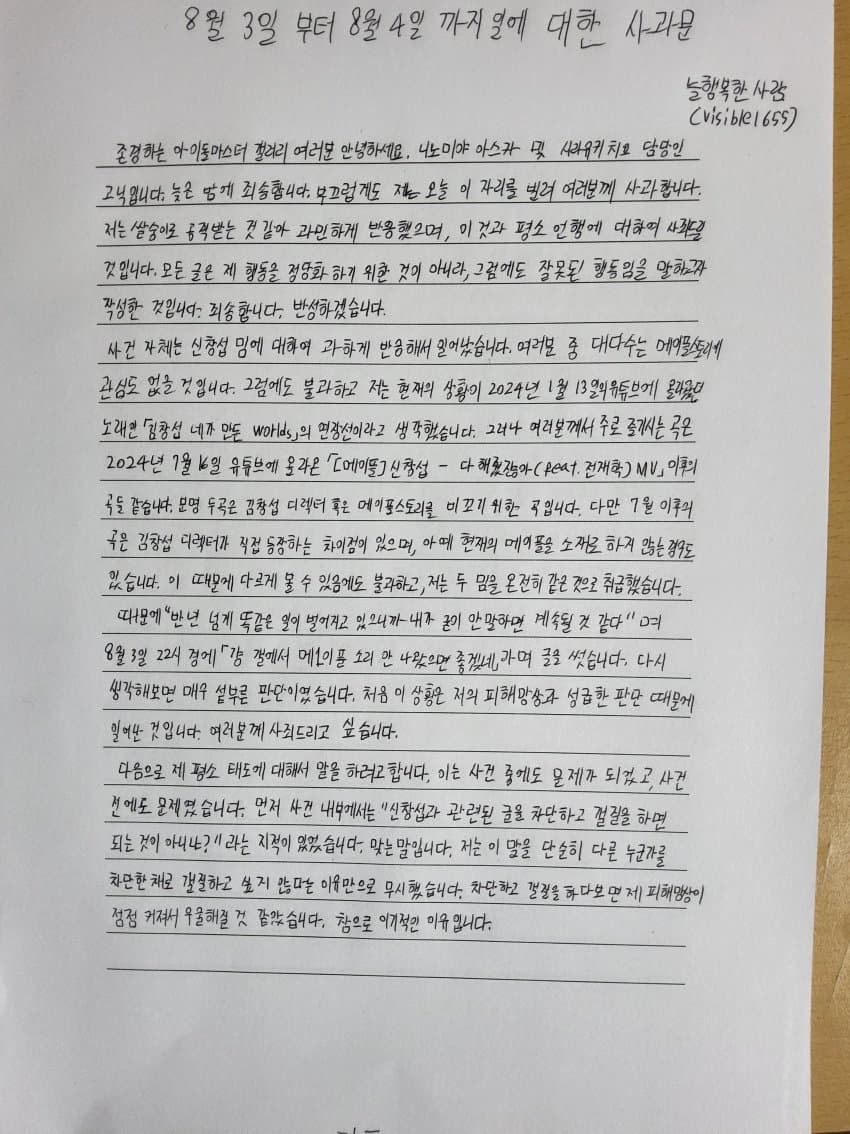 8월 3일 부터 8월 4일 까지 일에 대한 사과문
늘행복한 사람
(visible1655)
존경하는 아이돌마스터 갤러리 여러분 안녕하세요. 니노미야 아스카 및 시라유키 치요 담당인
고닉입니다. 늦은 밤에 죄송합니다. 부끄럽게도 저는 오늘 이 자리를 빌려 여러분께 사과합니다.
저는 쌀숭이로 공격받는 것 같아 과민하게 반응했으며, 이것과 평소 언행에 대하여 사죄드릴
것입니다. 모든 글은 제 행동을 정당화 하기 위한 것이 아니라, 그럼에도 잘못된 행동임을 말하고자
작성한 것입니다. 죄송합니다. 반성하겠습니다.
사건 자체는 신창섭 밈에 대하여 과하게 반응해서 일어났습니다. 여러분 중 대다수는 메이플스토리에
관심도 없을 것입니다. 그럼에도 불과하고 저는 현재의 상황이 2024년 1월 13일의 유튜브에 올라왔던
노래인 「김창섭 네가 만든 worlds」의 연장선이라고 생각했습니다. 그러나 여러분께서 주로 즐기시는 곡은
2024년 7월 16일 유튜브에 올라온 「[메이플] 신창섭 - 다 해줬잖아 (feat. 전재학) MV」 이후의
곡들 같습니다. 분명 두곡은 김창섭 디렉터 혹은 메이플스토리를 비꼬기 위한 곡입니다. 다만 7월 이후의
곡은 김창섭 디렉터가 직접 등장하는 차이점이 있으며, 아예 현재의 메이플을 소재로 하지 않는 경우도
있습니다. 이 때문에 다르게 볼 수 있음에도 불과하고, 저는 두 밈을 온전히 같은 것으로 취급했습니다.
때문에 "반년 넘게 똑같은 일이 벌어지고 있으니까 내가 굳이 안말하면 계속될 것 같다" 며
8월 3일 22시 경에 「걍 갤에서 메1이플 소리 안 나왔으면 좋겠네」라며 글을 썼습니다. 다시
생각해보면 매우 섣부른 판단이었습니다. 처음 이 상황은 저의 피해망상과 성급한 판단 때문에
일어난 것입니다. 여러분께 사죄드리고 싶습니다.
다음으로 제 평소 태도에 대해서 말을 하려고합니다. 이는 사건 중에도 문제가 되었고, 사건
전에도 문제였습니다. 먼저 사건 내부에서는 "신창섭과 관련된 글을 차단하고 갤질을 하면
되는 것이 아니냐?" 라는 지적이 있었습니다. 맞는 말입니다. 저는 이 말을 단순히 다른 누군가를
차단한 채로 갤질하고 싶지 않다는 이유만으로 무시했습니다. 차단하고 갤질을 하다보면 제 피해망상이
점점 커져서 우울해질 것 같았습니다. 참으로 이기적인 이유입니다.